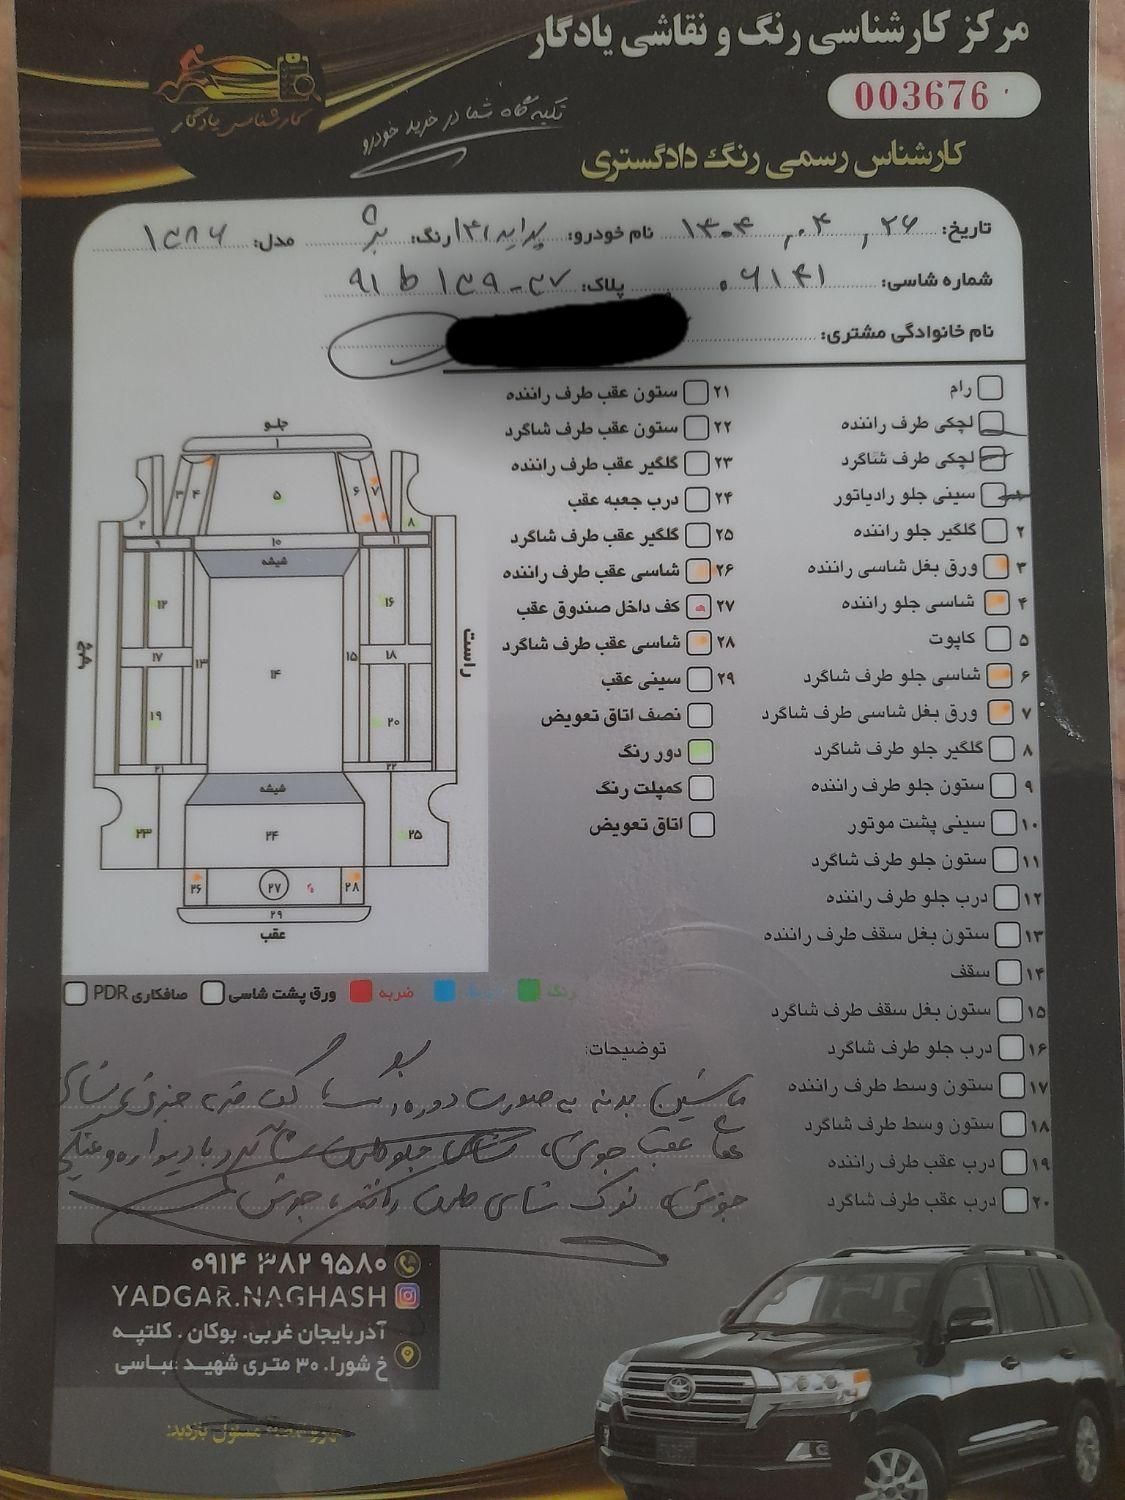 مرکز کارشناسی رنگ و نقاشی یادگار
003676
کارشناسی یادگار
تکیه گاه شما در خرید خودرو
کارشناس رسمی رنگ دادگستری
تاریخ: ۱۴۰۴ , ۰۴ , ۲۶ نام خودرو: پراید ۱۴۱ رنگ: بژ مدل: ۱۳۸۶
شماره شاسی: ۰۶۱۴۱ پلاک: ۳۷ - ۱۳۹ ط ۹۱
نام خانوادگی مشتری:
رام
لچکی طرف راننده
لچکی طرف شاگرد
۱ سینی جلو رادیاتور
۲ گلگیر جلو راننده
۳ ورق بغل شاسی راننده
۴ شاسی جلو راننده
۵ کاپوت
۶ شاسی جلو طرف شاگرد
۷ ورق بغل شاسی طرف شاگرد
۸ گلگیر جلو طرف شاگرد
۹ ستون جلو طرف راننده
۱۰ سینی پشت موتور
۱۱ ستون جلو طرف شاگرد
۱۲ درب جلو طرف راننده
۱۳ ستون بغل سقف طرف راننده
۱۴ سقف
۱۵ ستون بغل سقف طرف شاگرد
۱۶ درب جلو طرف شاگرد
۱۷ ستون وسط طرف راننده
۱۸ ستون وسط طرف شاگرد
۱۹ درب عقب طرف راننده
۲۰ درب عقب طرف شاگرد
۲۱ ستون عقب طرف راننده
۲۲ ستون عقب طرف شاگرد
۲۳ گلگیر عقب طرف راننده
۲۴ درب جعبه عقب
۲۵ گلگیر عقب طرف شاگرد
۲۶ شاسی عقب طرف راننده
۲۷ کف داخل صندوق عقب
۲۸ شاسی عقب طرف شاگرد
۲۹ سینی عقب
نصف اتاق تعویض
دور رنگ
کمپلت رنگ
اتاق تعویض
جلو
۱
۲ ۳ ۴ ۵ ۶ ۷ ۸
۹ ۱۰ ۱۱
شیشه
۱۲ ۱۶
چپ راست
۱۷ ۱۳ ۱۴ ۱۵ ۱۸
۱۹ ۲۰
۲۱ ۲۲
شیشه
۲۳ ۲۴ ۲۵
۲۶ ۲۷ ۲۸
۲۹
عقب
رنگ ضربه ورق پشت شاسی صافکاری PDR
توضیحات:
ماشین بدنه به صورت دور رنگ کف ضربه جزئی
عقب جوش شاسی جلو طرف شاگرد با دیواره
جوش نوک شاسی طرف راننده جوش
۰۹۱۴ ۳۸۲ ۹۵۸۰
YADGAR.NAGHASH
آذربایجان غربی. بوکان . کلتپه
خ شورا. ۳۰ متری شهید عباسی
مسئول بازدید: